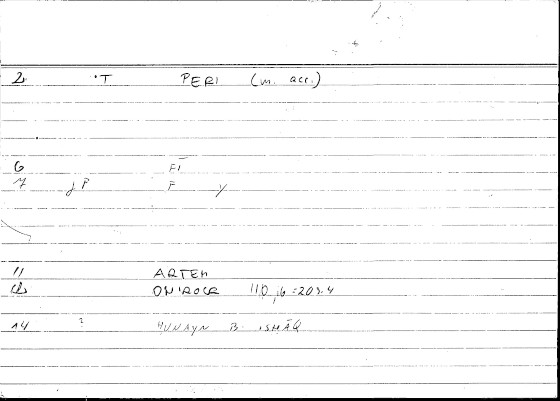 2 ·T PERI (m. acc.)
6 FĪ
7 F
11 ARTEM
12 ONIROCR 110,16=203.4
14 ? ḤUNAYN B. ISḤĀQ